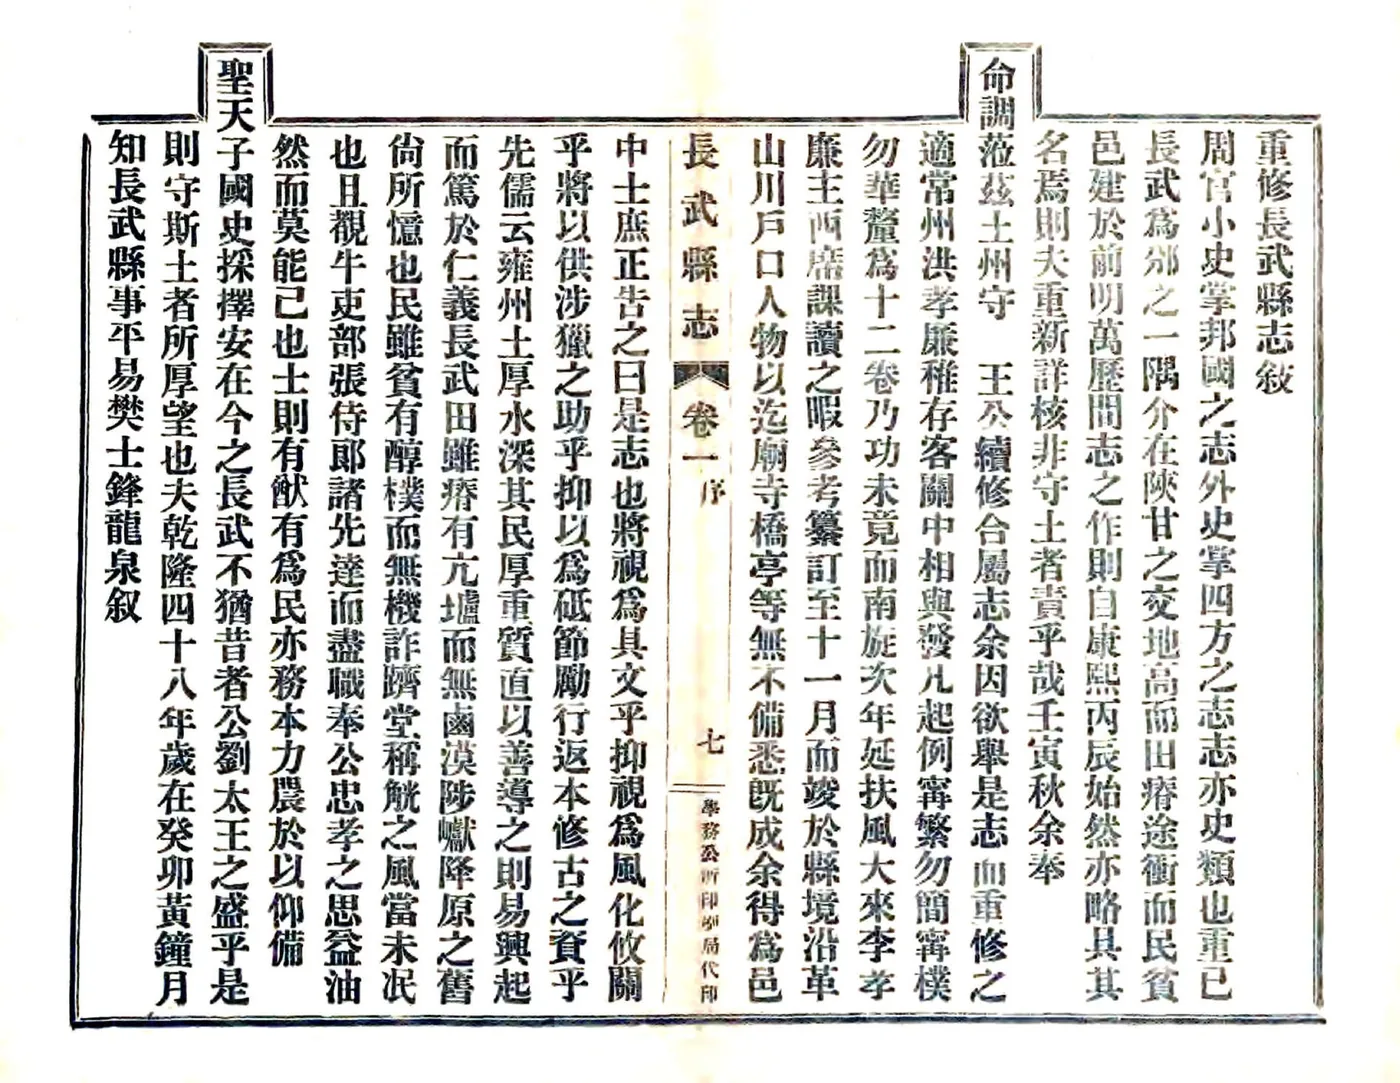 重修長武縣志敘
周官小史掌邦國之志外史掌四方之志志亦史類也重已
長武爲邠之一隅介在陝甘之交地高而田瘠途衝而民貧
邑建於前明萬歷間志之作則自康熙丙辰始然亦略具其
名焉則夫重新詳核非守土者責乎哉壬寅秋余奉
命調蒞茲土州守 王公續修合屬志余因欲舉是志而重修之
適常州洪孝廉稚存客關中相與發凡起例寗繁勿簡寗樸
勿華釐爲十二卷乃功未竟而南旋次年延扶風大來李孝
廉主西席課讀之暇參考纂訂至十一月而竣於縣境沿革
山川戶口人物以迄廟寺橋亭等無不備悉既成余得為邑
長武縣志 卷一 序 七 學務公所印刷局代印
中士庶正告之曰是志也將視爲具文乎抑視爲風化攸關
乎將以供涉獵之助乎抑以爲砥節勵行返本修古之資乎
先儒云雍州土厚水深其民厚重質直以善導之則易興起
而篤於仁義長武田雖瘠有亢壚而無鹵漠陟巘降原之舊
尙所憶也民雖貧有醇樸而無機詐躋堂稱觥之風當未泯
也且觀牛吏部張侍郎諸先達而盡職奉公忠孝之思益油
然而莫能已也士則有猷有爲民亦務本力農於以仰備
聖天子國史採擇安在今之長武不猶昔者公劉太王之盛乎是
則守斯土者所厚望也夫乾隆四十八年歲在癸卯黃鐘月
知長武縣事平易樊士鋒龍泉叙